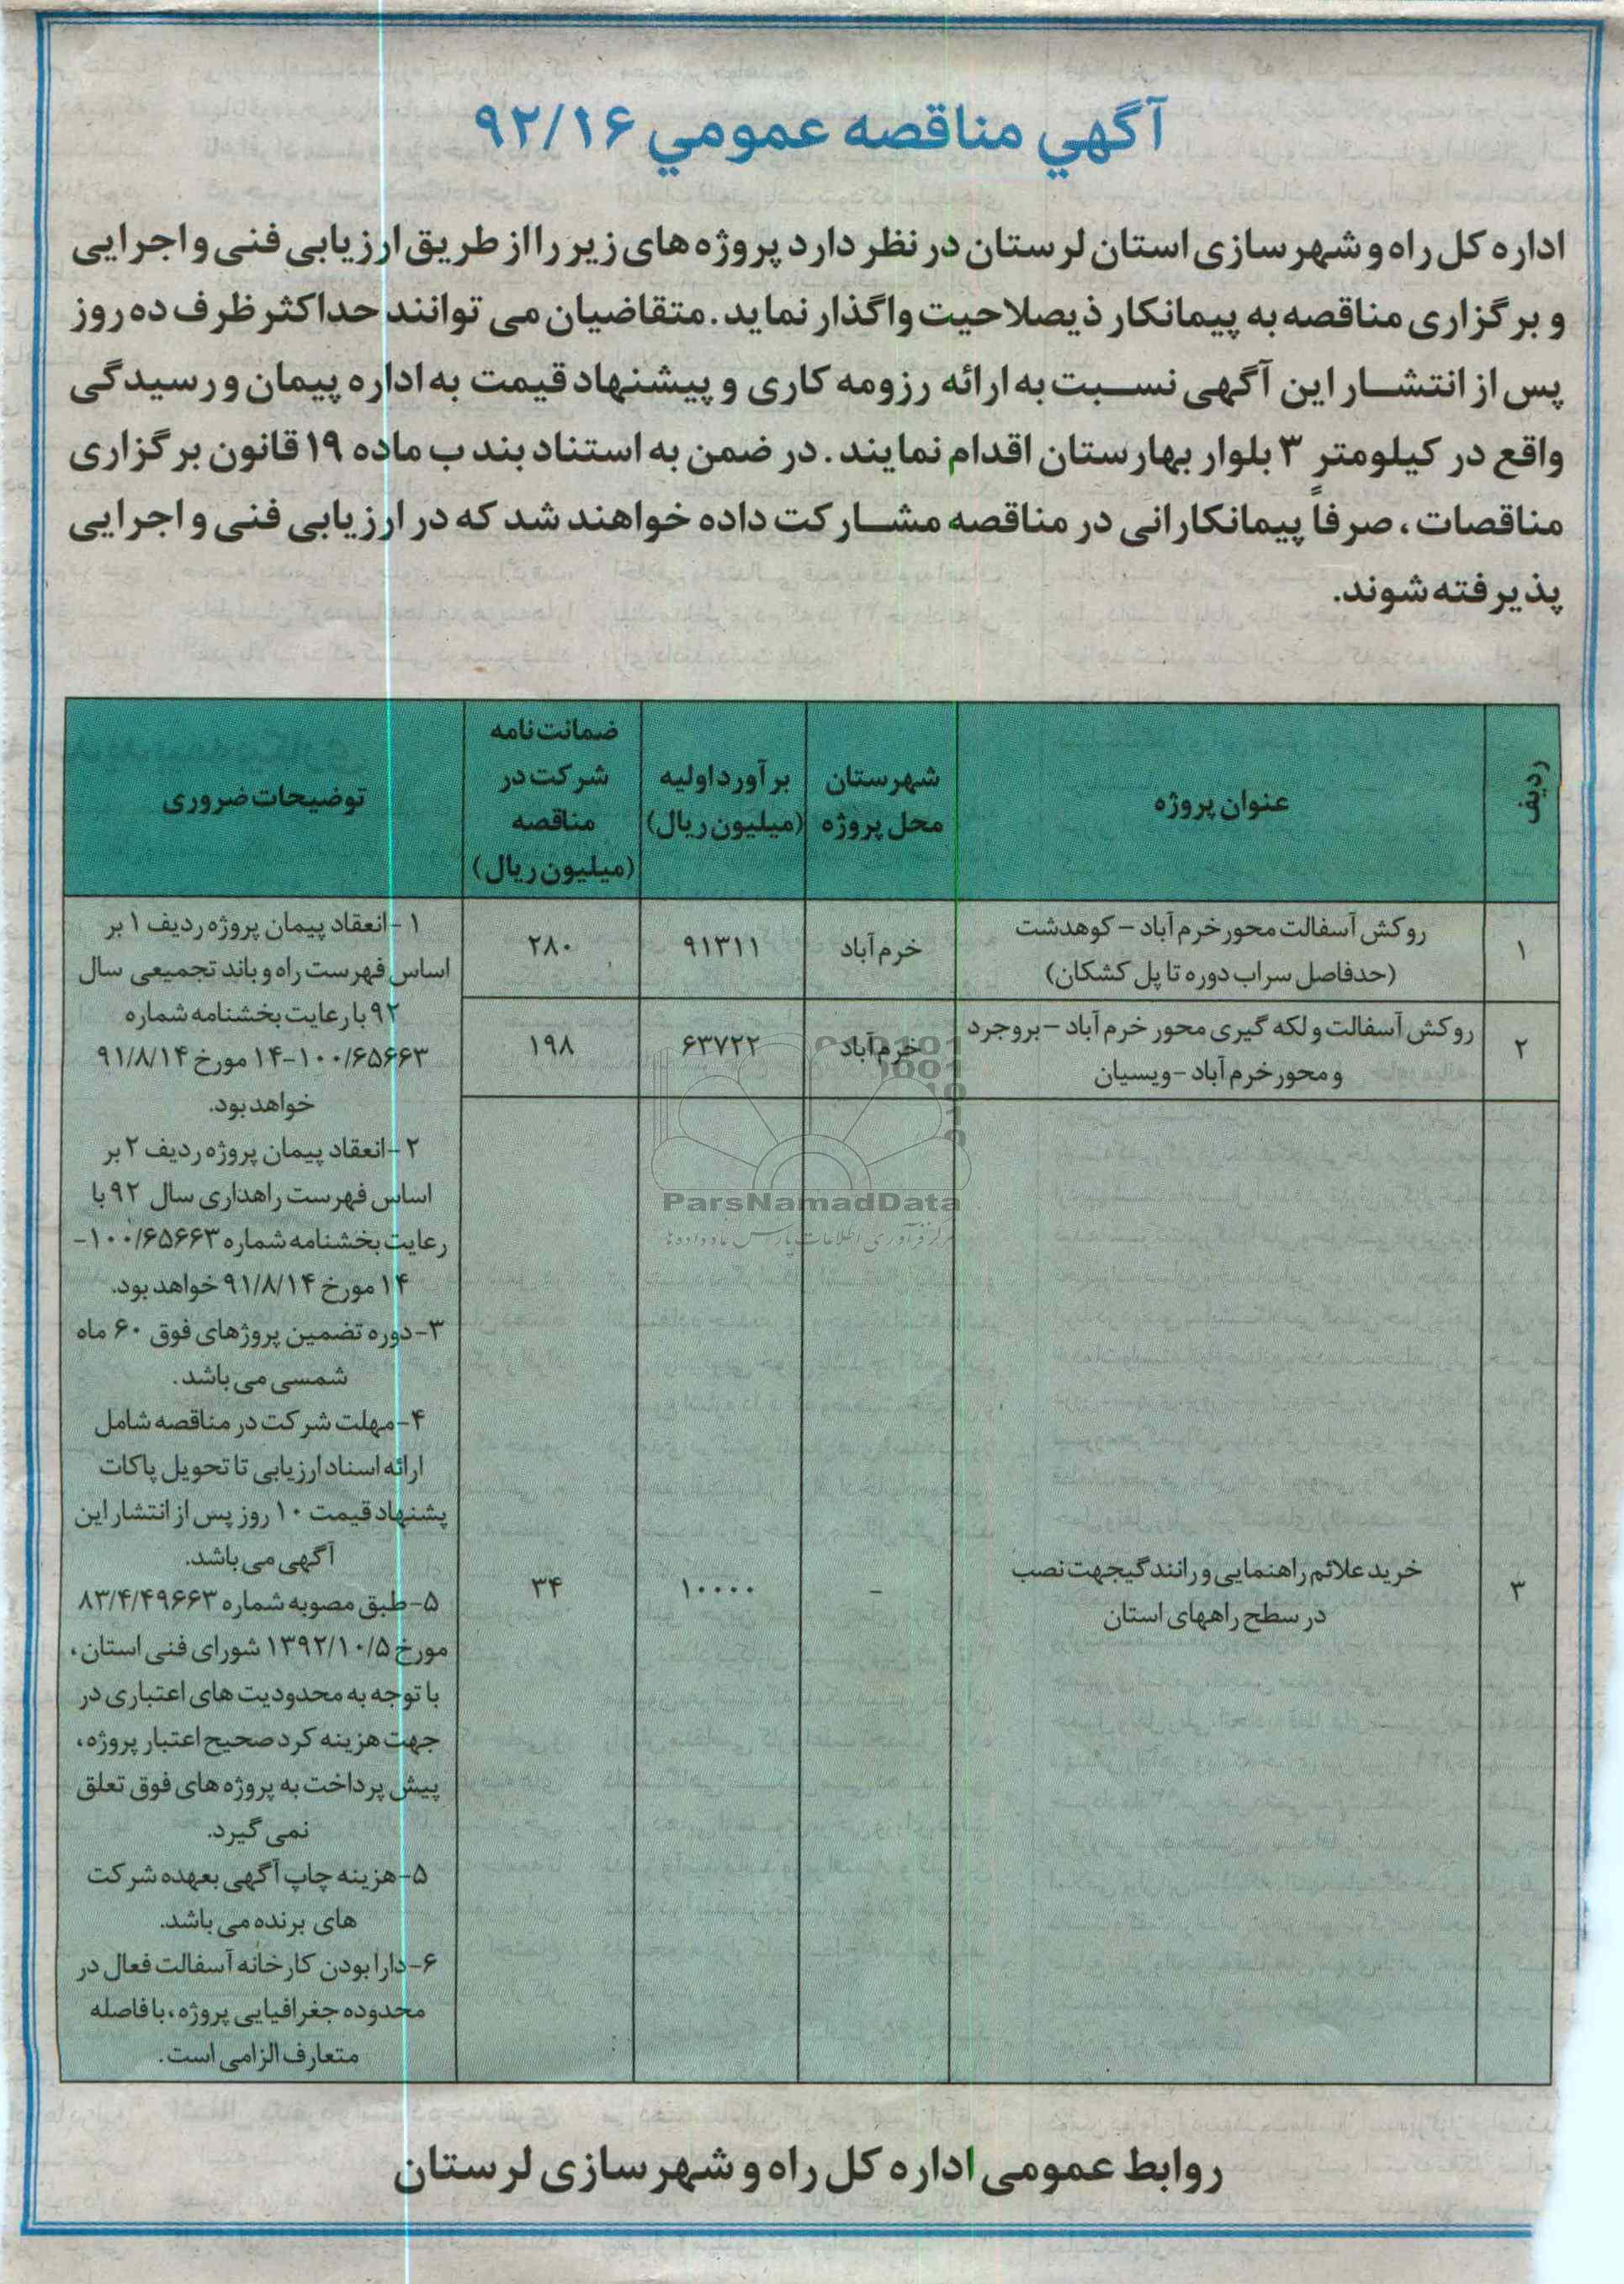 آگهي مناقصه عمومي ۹۲/۱۶
اداره کل راه و شهرسازی استان لرستان در نظر دارد پروژه های زیر را از طریق ارزیابی فنی و اجرایی
و برگزاری مناقصه به پیمانکار ذیصلاحیت واگذار نماید. متقاضیان می توانند حداکثر ظرف ده روز
پس از انتشار این آگهی نسبت به ارائه رزومه کاری و پیشنهاد قیمت به اداره پیمان و رسیدگی
واقع در کیلومتر ۳ بلوار بهارستان اقدام نمایند. در ضمن به استناد بند ب ماده ۱۹ قانون برگزاری
مناقصات، صرفاً پیمانکارانی در مناقصه مشارکت داده خواهند شد که در ارزیابی فنی و اجرایی
پذیرفته شوند.
ردیف
عنوان پروژه
شهرستان
محل پروژه
برآورد اولیه
(میلیون ریال)
ضمانت نامه
شرکت در
مناقصه
(میلیون ریال)
توضیحات ضروری
۱
روکش آسفالت محور خرم آباد – کوهدشت
(حدفاصل سراب دوره تا پل کشکان)
خرم آباد
۹۱۳۱۱
۲۸۰
۲
روکش آسفالت و لکه گیری محور خرم آباد – بروجرد
و محور خرم آباد – ویسیان
خرم آباد
۶۳۷۲۲
۱۹۸
۳
خرید علائم راهنمایی و رانندگیجهت نصب
در سطح راههای استان
–
۱۰۰۰۰
۳۴
۱-انعقاد پیمان پروژه ردیف ۱ بر
اساس فهرست راه و باند تجمیعی سال
۹۲ با رعایت بخشنامه شماره
۱۴-۱۰۰/۶۵۶۶۳ مورخ ۹۱/۸/۱۴
خواهد بود.
۲-انعقاد پیمان پروژه ردیف ۲ بر
اساس فهرست راهداری سال ۹۲ با
رعایت بخشنامه شماره ۱۰۰/۶۵۶۶۳-
۱۴ مورخ ۹۱/۸/۱۴ خواهد بود.
۳-دوره تضمین پروژهای فوق ۶۰ ماه
شمسی می باشد.
۴-مهلت شرکت در مناقصه شامل
ارائه اسناد ارزیابی تا تحویل پاکات
پشنهاد قیمت ۱۰ روز پس از انتشار این
آگهی می باشد.
۵-طبق مصوبه شماره ۸۳/۴/۴۹۶۶۳
مورخ ۱۳۹۲/۱۰/۵ شورای فنی استان،
با توجه به محدودیت های اعتباری در
جهت هزینه کرد صحیح اعتبار پروژه،
پیش پرداخت به پروژه های فوق تعلق
نمی گیرد.
۵-هزینه چاپ آگهی بعهده شرکت
های برنده می باشد.
۶-دارا بودن کارخانه آسفالت فعال در
محدوده جغرافیایی پروژه، با فاصله
متعارف الزامی است.
ParsNamadData
مرکز فرآوری اطلاعات پارس نماد داده ها
روابط عمومی اداره کل راه و شهرسازی لرستان